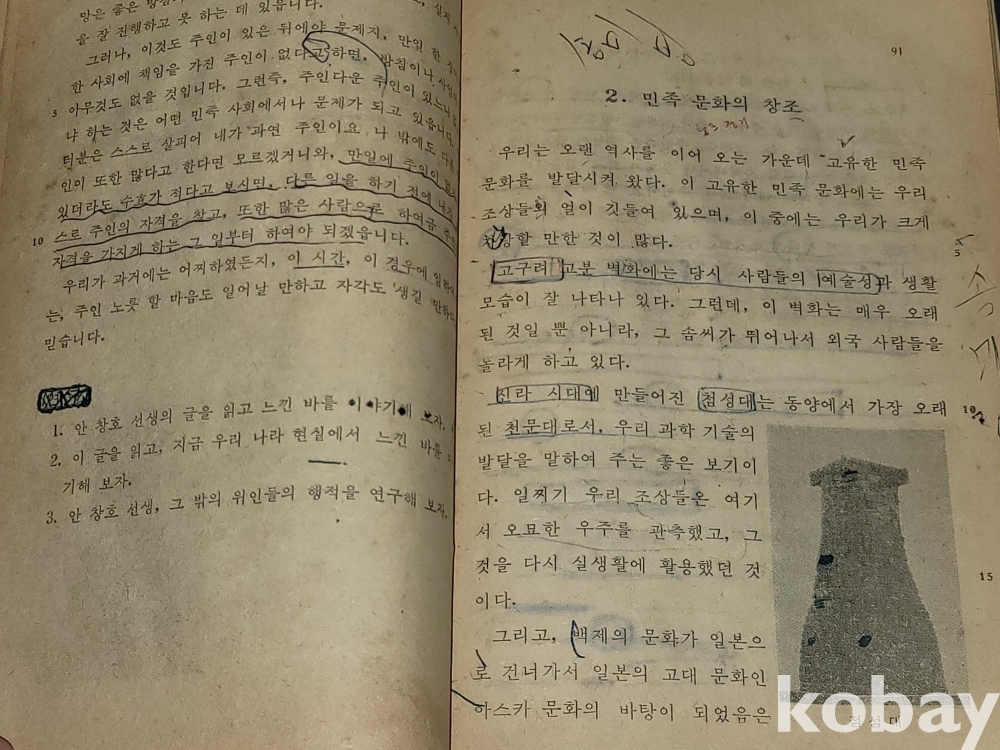 망은 좋은
을 잘 진행하고 못 하는 데 있읍니다.
그러나, 이것도 주인이 있은 뒤에야 문제지, 만일 한
한 사회에 책임을 가진 주인이 없다고 하면, 방침이나
5 아무것도 없을 것입니다. 그런즉, 주인다운 주인이 있느냐
냐 하는 것은 어떤 민족 사회에서나 문제가 되고 있읍니다.
터분은 스스로 살피어 내가 과연 주인이요, 나 밖에도
인이 또한 많다고 한다면 모르겠거니와, 만일에 주인이
있더라도 수효가 적다고 보시면, 다른 일을 하기 전에 내가
10 스로 주인의 자격을 찾고, 또한 많은 사람으로 하여금
자격을 가지게 하는 그 일부터 하여야 되겠읍니다.
우리가 과거에는 어찌하였든지, 이 시간, 이 경우에
는, 주인 노릇 할 마음도 일어날 만하고 자각도 생길
믿습니다.
1. 안 창호 선생의 글을 읽고 느낀 바를 이야기해 보자.
2. 이 글을 읽고, 지금 우리 나라 현실에서 느낀 바를
기해 보자.
3. 안 창호 선생, 그 밖의 위인들의 행적을 연구해 보자.
91
2. 민족 문화의 창조
우리는 오랜 역사를 이어 오는 가운데 고유한 민족
문화를 발달시켜 왔다. 이 고유한 민족 문화에는 우리
조상들의 얼이 깃들여 있으며, 이 중에는 우리가 크게
자랑할 만한 것이 많다.
5
고구려 고분 벽화에는 당시 사람들의 예술성과 생활
모습이 잘 나타나 있다. 그런데, 이 벽화는 매우 오래
된 것일 뿐 아니라, 그 솜씨가 뛰어나서 외국 사람들을
놀라게 하고 있다.
신라 시대에 만들어진 첨성대는 동양에서 가장 오래 10
된 천문대로서, 우리 과학 기술의
발달을 말하여 주는 좋은 보기이
다. 일찌기 우리 조상들은 여기
서 오묘한 우주를 관측했고, 그
것을 다시 실생활에 활용했던 것 15
이다.
그리고, 백제의 문화가 일본으
로 건너가서 일본의 고대 문화인
아스카 문화의 바탕이 되었음은
첨성대
kobay